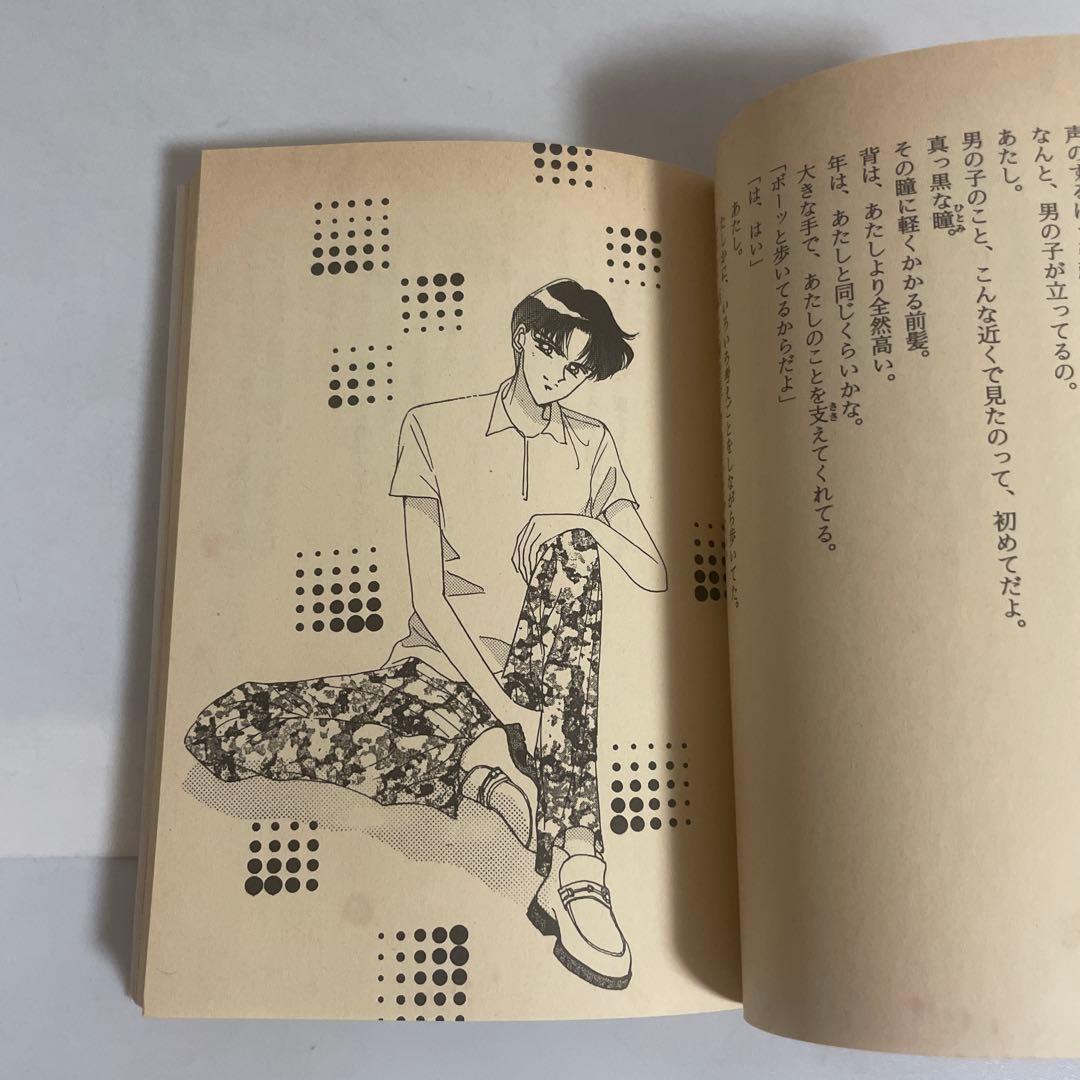 声の
なんと、男の子が立ってるの。
あたし。
男の子のこと、こんな近くで見たのって、初めてだよ。
真っ黒な瞳。
ひとみ
その瞳に軽くかかる前髪。
背は、あたしより全然高い。
年は、あたしと同じくらいかな。
大きな手で、あたしのことを支えてくれてる。
ささ
「ボーッと歩いてるからだよ」
「は、はい」
あたし。
いろいろ考えごとをしながら歩いてた。